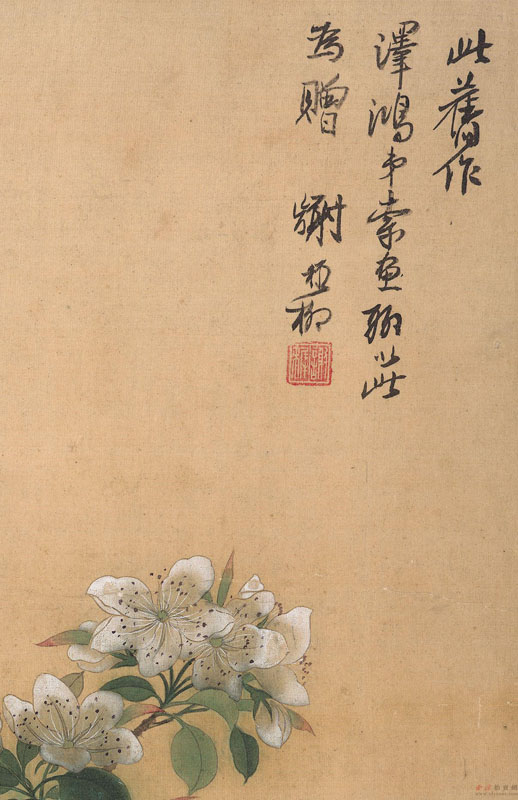 此舊作
澤鴻弟索画輒以此
為贈 謝稚柳